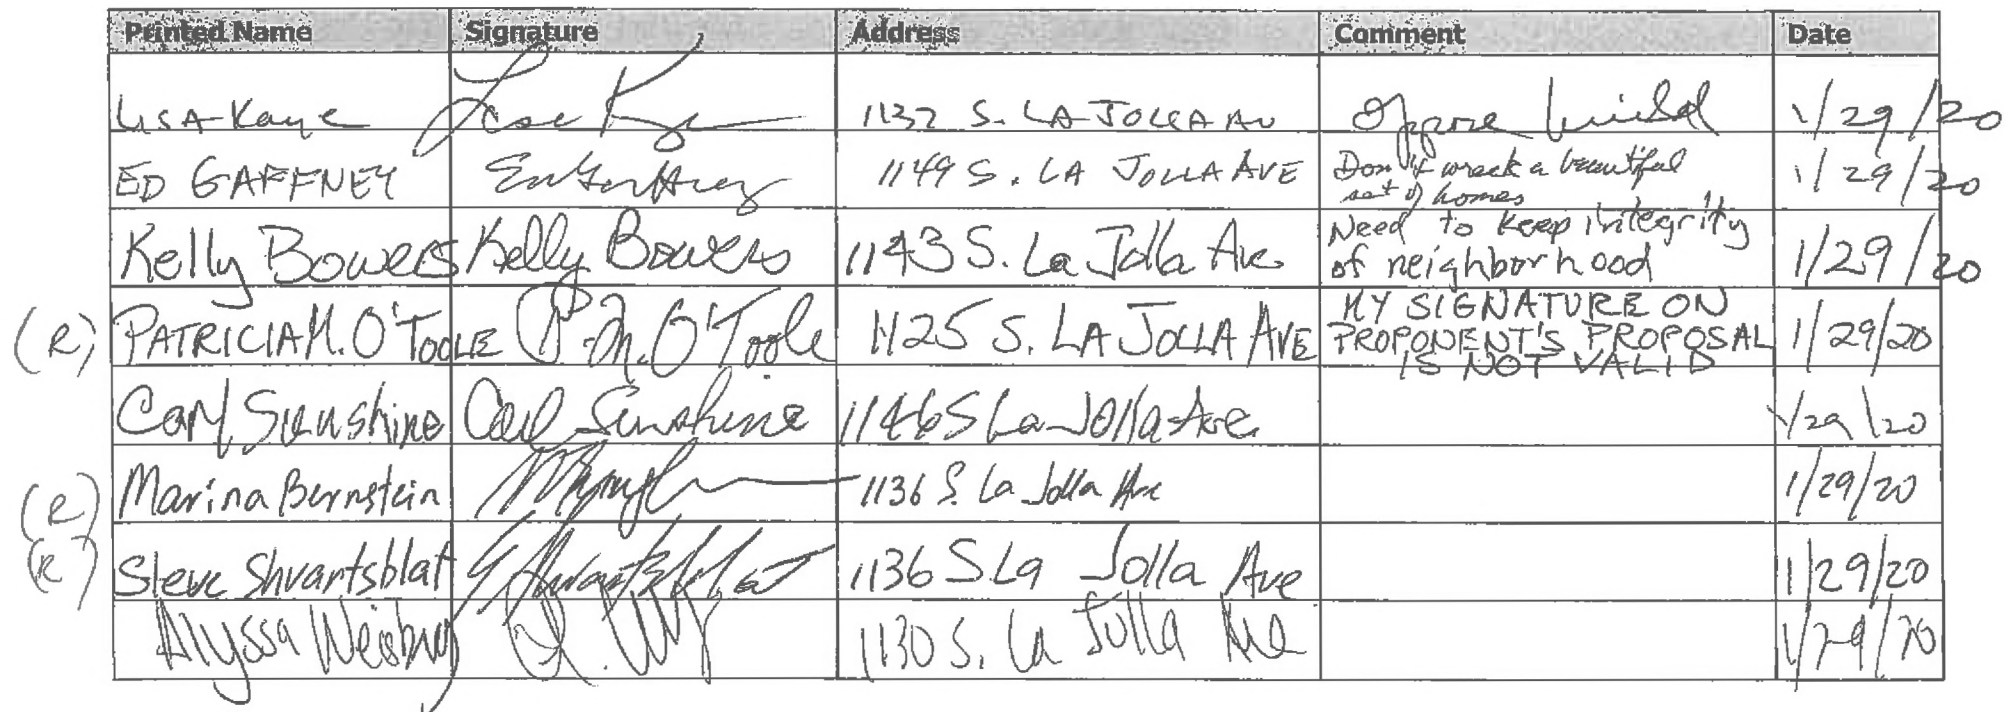 Printed Name Signature Address Comment Date
Lisa Kaye Lisa K 1132 S. LA JOLLA AV Oppose 1/29/20
ED GAFFNEY Ed Gaffney 1149 S. LA JOLLA AVE Don't wreck a beautiful 1/29/20
set of homes
Kelly Bowers Kelly Bowers 1143 S. La Jolla Ave Need to keep integrity 1/29/20
of neighborhood
(R) PATRICIA M. O'TOOLE P.M. O'Toole 1125 S. LA JOLLA AVE MY SIGNATURE ON 1/29/20
PROPONENT'S PROPOSAL
IS NOT VALID
Carl Sunshine Carl Sunshine 1146 S La Jolla Ave. 1/29/20
(R) Marina Bernstein 1136 S. La Jolla Ave 1/29/20
(R) Steve Shvartsblat S Shvartsblat 1136 S La Jolla Ave 1/29/20
Alyssa Weisburg 1130 S. La Jolla Ave 1/29/20